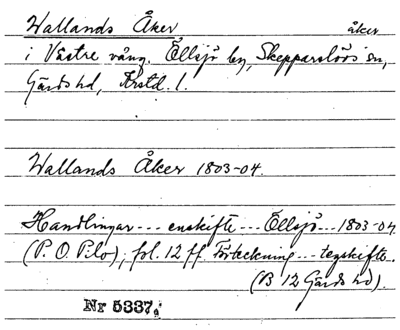 Wallands Åker åker
i Västre vång. Ellsjö by, Skepparslövs sn,
Gärds hd, Krstd. l.
Wallands Åker 1803-04.
Handlingar --- enskifte --- Ellsjö --- 1803-04
(P. O. Pilo), fol. 12 ff. Förteckning --- tegskifte.
(B 12 Gärds hd).
Nr 5337a